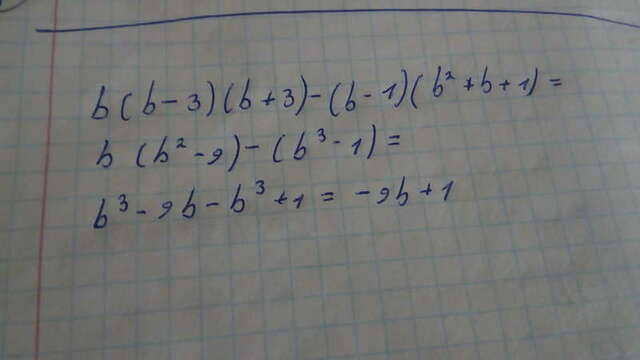 b(b-3)(b+3)-(b-1)(b²+b+1)=
b (b²-9)-(b³-1)=
b³-9b-b³+1=-9b+1